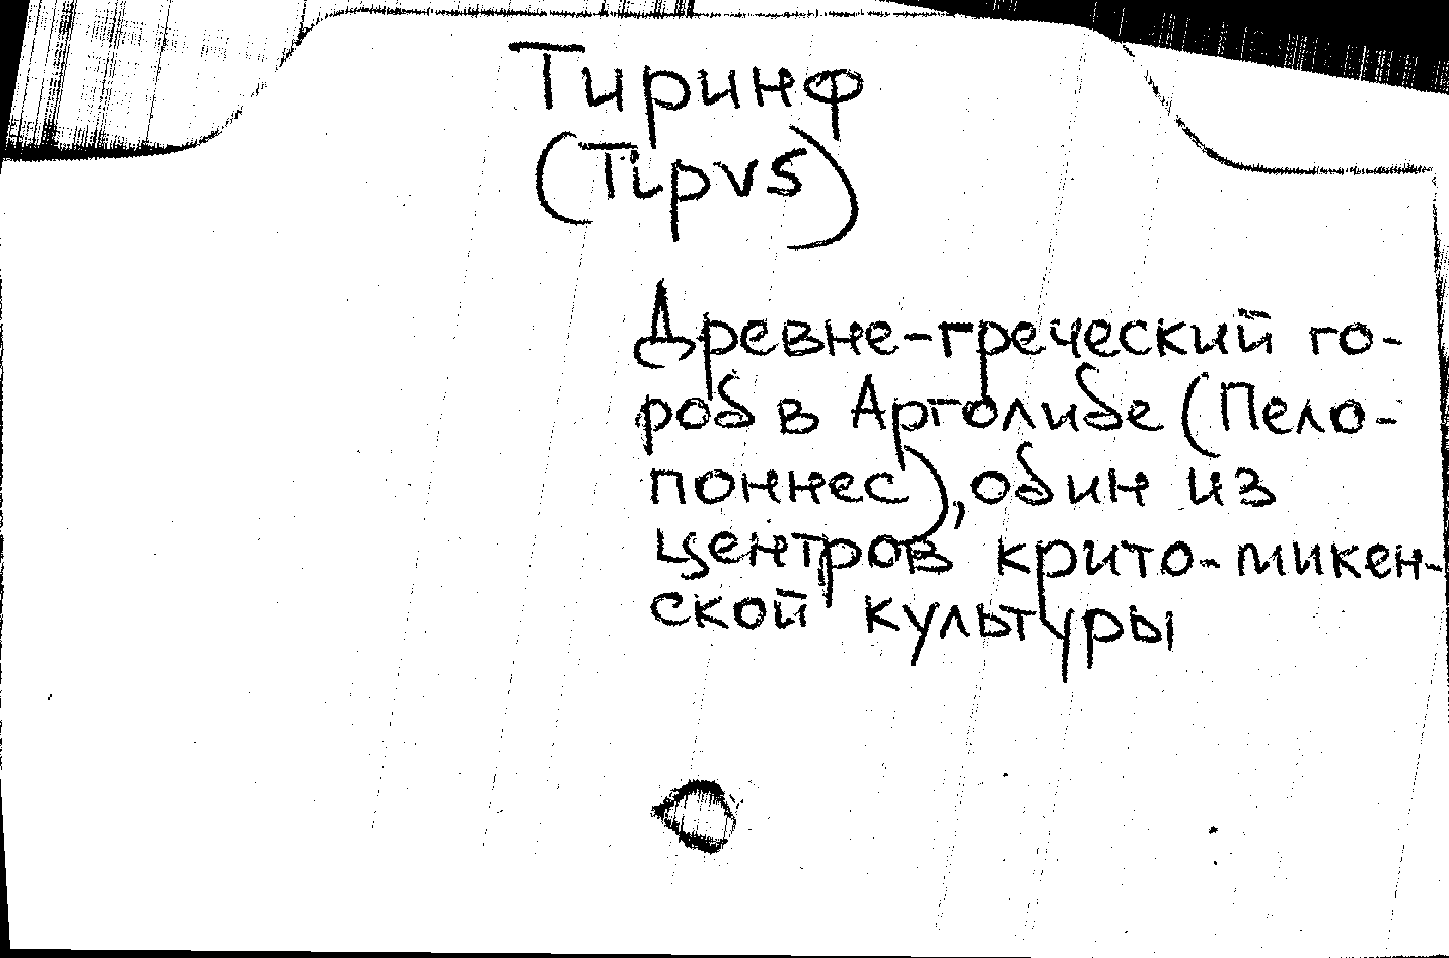 Тиринф
(Τίρνς)
Древне-греческий го-
род в Арголиде (Пело-
поннес), один из
центров крито-микен-
ской культуры